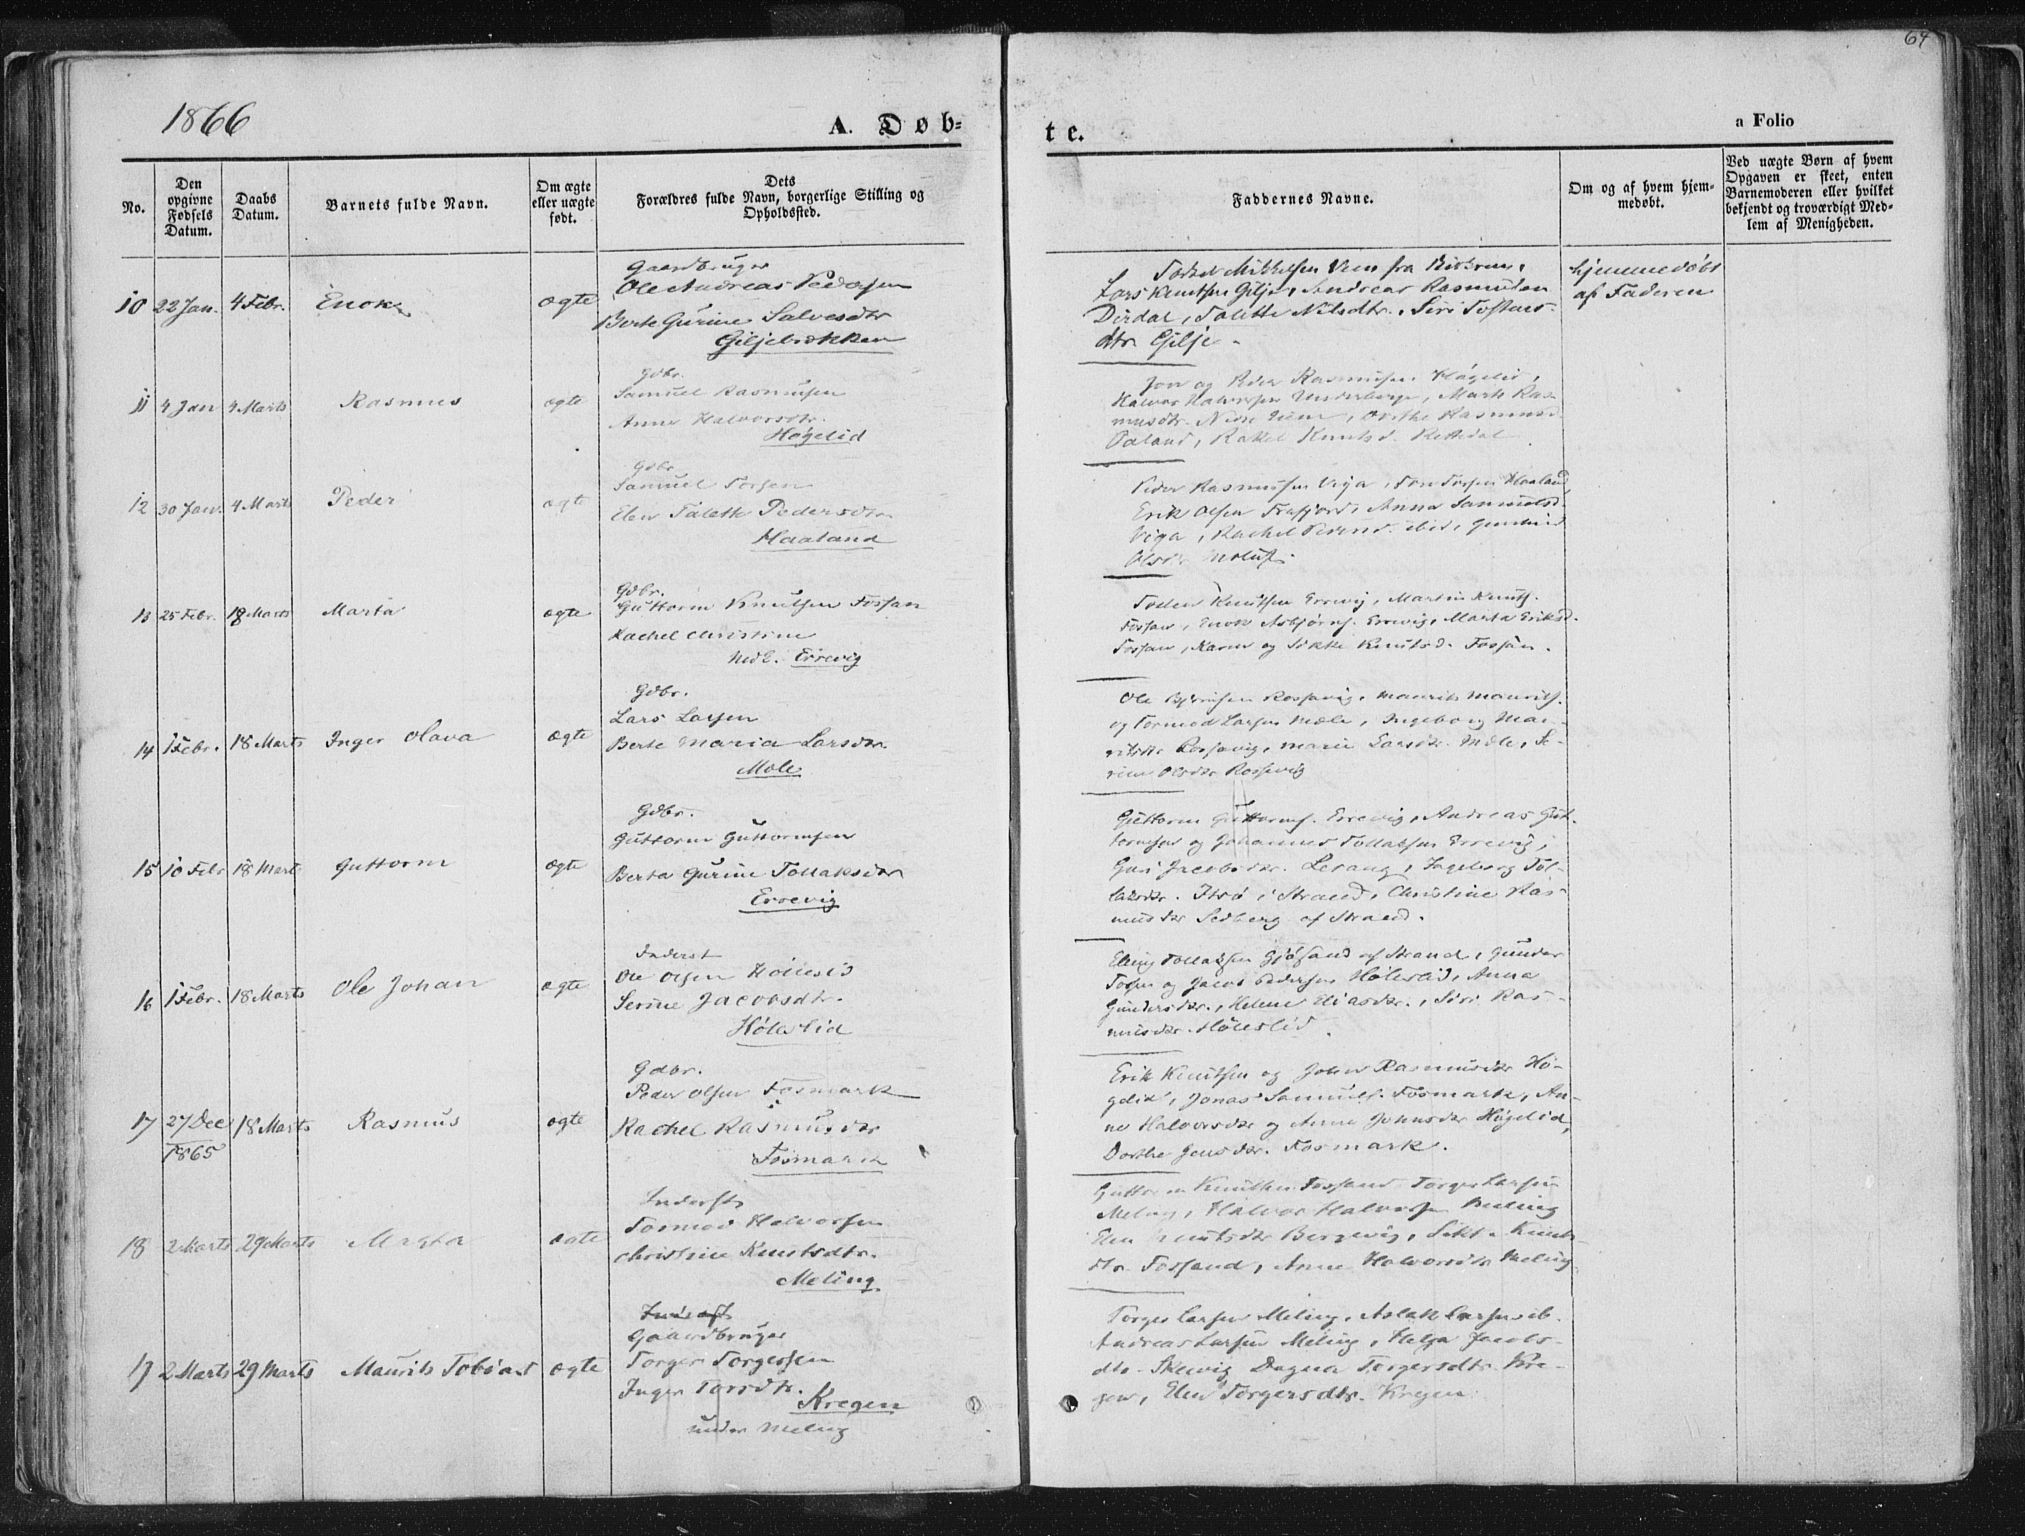 64
1866
A. Døb-
te.
a Folio
No.
Den opgivne Fødsels Datum.
Daabs Datum.
Barnets fulde Navn.
Om ægte eller uægte født.
Dets Forældres fulde Navn, borgerlige Stilling og Opholdssted.
Faddernes Navne.
Om og af hvem hjemmedøbt.
Ved uægte Børn af hvem Opgaven er skeet, enten Barnemoderen eller hvilket bekjendt og troværdigt Medlem af Menigheden.
10 22 Jan. 4 Febr. Enok ægte
Gaardbruger
Ole Andreas Pedersen
Berte Gurine Salvesdtr
Giljebrekken
Mikkelsen fra
Lars Knutsen Gilje, Andreas Rasmussen
Dirdal, Talette Nilsdtr., Siri Tostens-
dtr. Gilje
hjemmedøbt
af Faderen
11 4 Jan 4 Marts Rasmus ægte
Gdbr.
Samuel Rasmusen
Anne Halvorsdtr.
Høgelid
og Peder Rasmusen Høgelid,
Halvor Halvorsen
Rakel Knutsd.
12 30 Jan. 4 Marts Peder ægte
Gdbr
Samuel Torsen
Elen Talette Pedersdtr
Haaland
Peder Rasmusen Viga, Haaland,
Erik Olsen Frafjord, Anna Samuelsd.
Viga, Rachel ibid,
Olsdr
13 25 Febr. 18 Marts Marta ægte
Gdbr.
Guttorm Knutsen Fossan
Rachel Christine
Nedb. Errevig
Knutsen Errevig, Martin Knuts.
Fossan, Enok Asbjørns. Errevig, Marta Eriksd.
Fossan, Karen og Sikke Knutsd. Fossan.
14 1 Febr. 18 Marts Inger Olava ægte
Gdbr.
Lars Larsen
Berte Maria Larsdtr.
Mæle
Ole Bjørnsen Rossavig, Maurits Maurits.
og Tormod Larsen Mæle, Ingeborg Mau-
ritsdtr Rossavig, Marie Larsdtr. Mæle, Se-
rine Olsdtr Rossavig
15 10 Febr 18 Marts Guttorm ægte
Gdbr.
Guttorm Guttormsen
Berta Gurine Tollaksdtr
Errevig
Guttorm Guttorms. Errevig, Andreas Gut-
tormsen og Johannes Tollaksen Errevig,
Guri Jacobsdtr. Lerang, Ingeborg Tol-
laksdtr. i Strand, Christine Ras-
musdtr Sedberg af Strand.
16 1 Febr. 18 Marts Ole Johan ægte
Inderst
Ole Olsen Høleslid
Serine Jacobsdtr.
Høleslid
Eling Tollaksen af Strand, Gunder
og Jacob Pedersen Høleslid, Anna
Gundersdtr., Helene Eliasdtr., Siri Ras-
musdtr. Høleslid.
17 27 Dec 1865 18 Marts Rasmus ægte
Gdbr.
Peder Olsen Fosmark
Rachel Rasmusdtr
Fosmark
Erik Knutsen og Rasmusdtr Hø-
gelid, Jonas Samuels. Fosmark, An-
ne Halvorsdtr og Anne Johnsdtr Høgelid,
Dorthe Jensdtr. Fosmark.
18 2 Marts 29 Marts Marta ægte
Inderst
Tormod Halvorsen
Christine Knutsdtr.
Meling
Guttorm Knutsen Fossand Torger Larsen
Meling, Halvor Halvorsen Meling
Elen Knutsdtr Bergevig, Sikke Knuts-
dtr Fossand, Anne Halvorsdtr Meling
19 2 Marts 29 Marts Maurits Tobias ægte
Inderst
Gaardbruger
Torger Torgersen
Inger Torsdtr.
Kregen
under Meling
Torger Larsen Meling, Aslak Larsen ib.
Andreas Larsen Meling, Helga Jacobs-
dtr. Dagna Torgersdtr. Kre-
gen, Elen Torgersdtr. Kregen